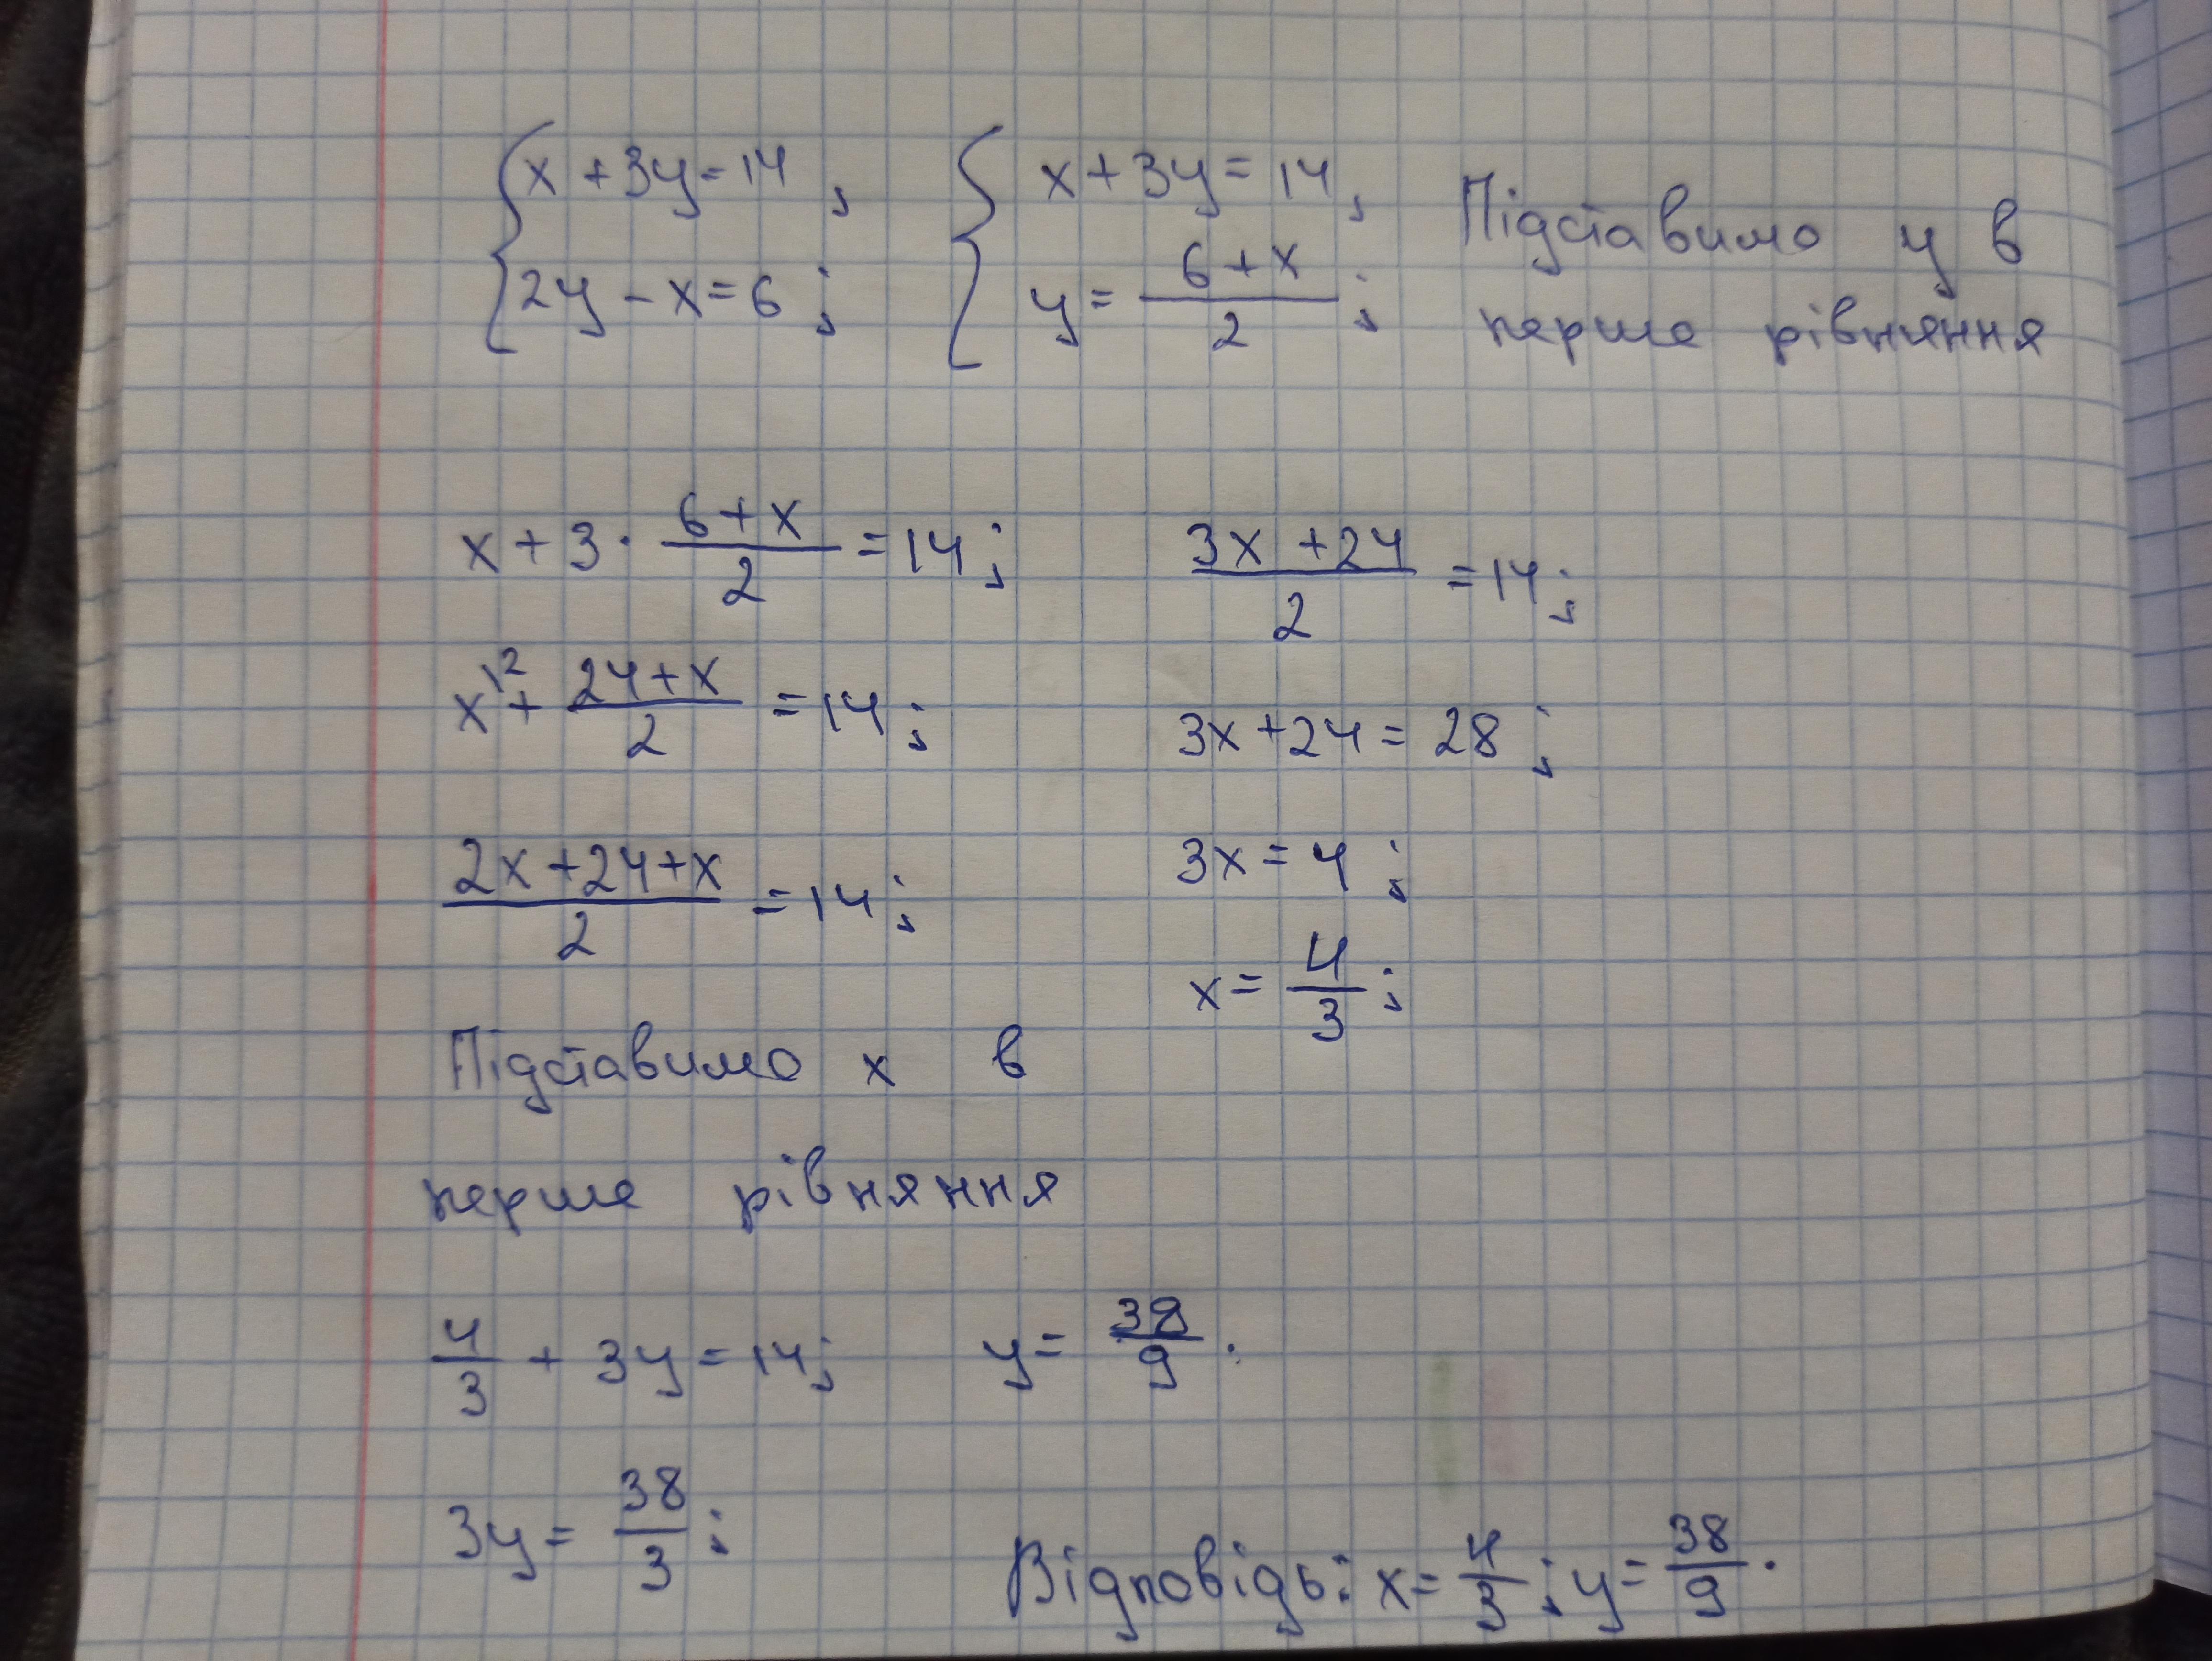 { x + 3y = 14 , { x + 3y = 14 , Підставимо y в
2y - x = 6 ; y = (6 + x)/2 ; перше рівняння
x + 3 · (6 + x)/2 = 14 ;
x^\2 + (24 + x)/2 = 14 ;
(2x + 24 + x)/2 = 14 ;
(3x + 24)/2 = 14 ;
3x + 24 = 28 ;
3x = 4 ;
x = 4/3 ;
Підставимо x в
перше рівняння
4/3 + 3y = 14 ;
3y = 38/3 ;
y = 38/9 .
Відповідь: x = 4/3 ; y = 38/9 .